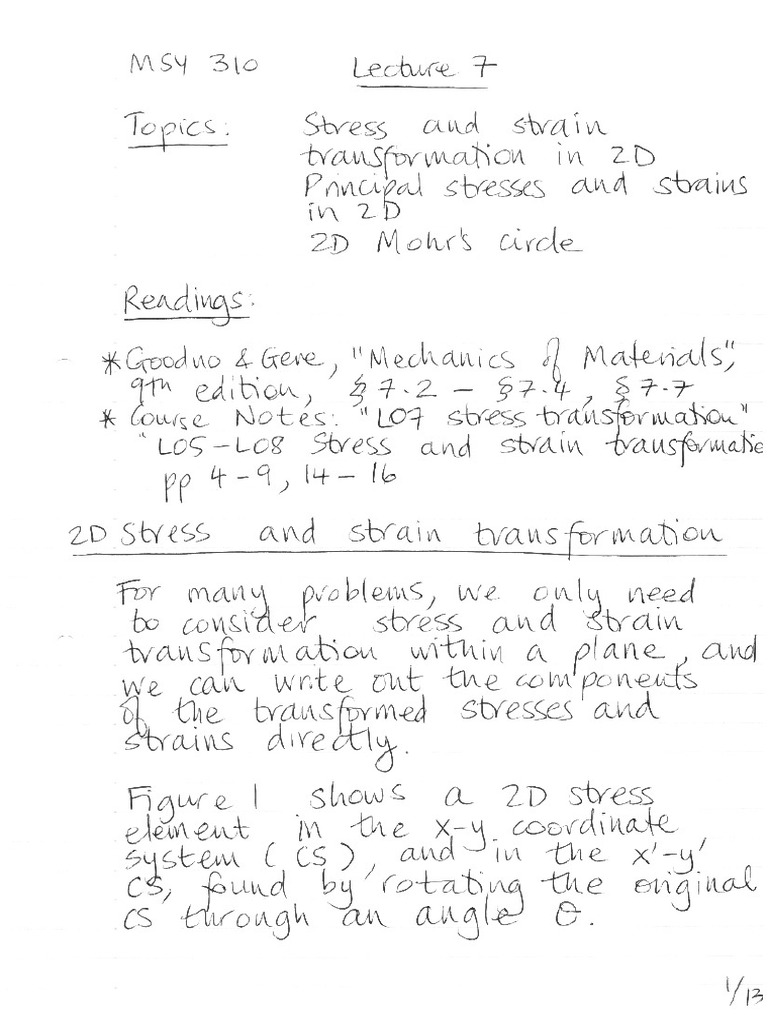 MSY 310 Lecture 7
Topics: Stress and strain
transformation in 2D
Principal stresses and strains
in 2D
2D Mohr's circle
Readings:
* Goodno & Gere, "Mechanics of Materials",
9th edition, § 7.2 – § 7.4, § 7.7
* Course Notes: "L07 stress transformation"
"L05-L08 Stress and strain transformatio
pp 4-9, 14-16
2D Stress and strain transformation
For many problems, we only need
to consider stress and strain
transformation within a plane, and
we can write out the components
of the transformed stresses and
strains directly.
Figure 1 shows a 2D stress
element in the x-y coordinate
system (CS), and in the x'-y'
CS, found by rotating the original
CS through an angle θ.
1/13